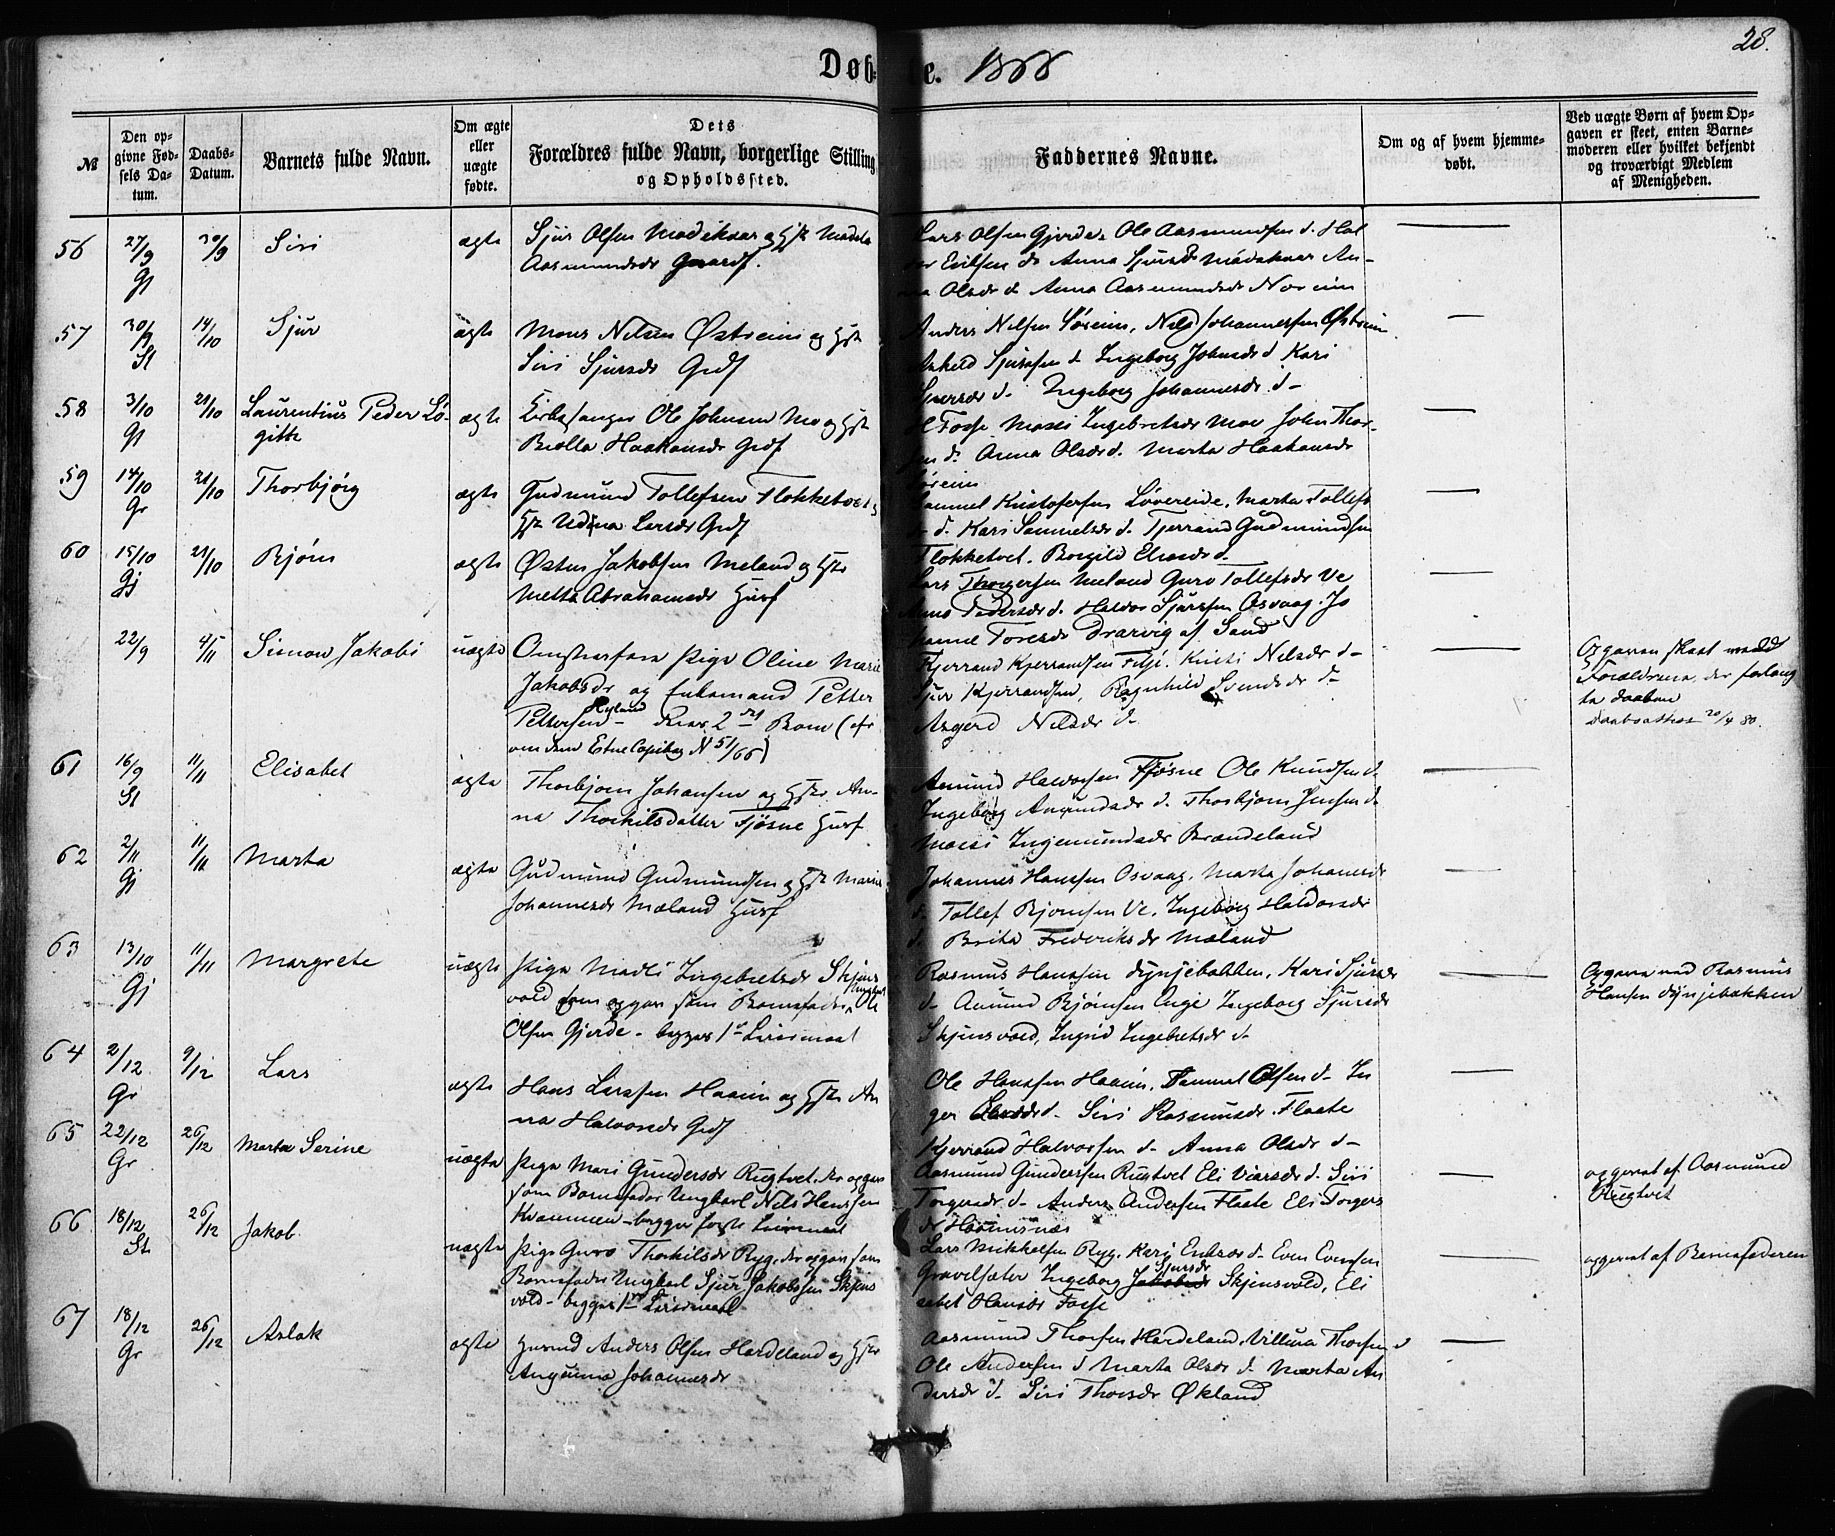 28.
Døbte. 1866
№
Den opgivne Fødsels Datum.
Daabs-Datum.
Barnets fulde Navn.
Om ægte eller uægte fødte.
Dets Forældres fulde Navn, borgerlige Stilling og Opholdssted.
Faddernes Navne.
Om og af hvem hjemmedøbt.
Ved uægte Børn af hvem Opgaven er skeet, enten Barnemoderen eller hvilket bekjendt og troværdigt Medlem af Menigheden.
56 27/9 Gj 30/9 Siri ægte
Sjur Olsen
Aasmundsdr Gaardf.
Lars Olsen Gjerde. Ole Aasmundsen d. Hal
Eriksen do Anna Sjursdr An-
na Olsdr d. Anna Aasmundsdr Noreim
57 30/9 St 14/10 Sjur ægte
Mons Nilsen Østreim og Hst
Siri Sjursdr Grdf
Anders Nilsen Søreim, Nils Johannessen Østreim
Askild Sjursen d. Ingeborg Johnsdr d. Kari
Sjursdr d. Ingeborg Johannesdr d-
58 3/10 Gj 21/10 Laurentius Peder Lø-
gith ægte
Kirkesanger Ole Johnsen Mo og Hst
Brolla Haakonsdr Grdf
Fosse Ingebretsdr Moe John Thor-
sen d. Anna Olsdr d. Marta Haakonsdr
Søreim
59 14/10 Gr 21/10 Thorbjørg ægte
Gudmund Tollefsen Flokketvet og
Hst Larsdr Grdf
Samuel Kristofersen Løvereide, Marta Tollefs
d. Kari Samuelsdr d. Tjerrand Gudmundsen
Flokketvet. Borgild d
60 15/10 Gj 21/10 Bjørn ægte
Østen Jakobsen Meland og Hst
Metta Abrahamsdr Husf
Lars Thorgersen Meland Guro Tollefsdr Ve
Anna Pedersdr d. Halvor Sjursen Osvaag. Jo
hanne Toresdr Drarvig af Sand
22/9 4/11 Simon Jakobi uægte
Omstreifere Pige Oline Marie
Jakobsdr og Enkemand Petter
Pettersen Hyland - 2det Barn (cfr
om dem Etne Copibog N 51/66)
Kjerrand Kjerrandsen Filje. Kristi Nilsdr d-
Sjur Kjerrandsen, Ragnhild Svendsdr d-
Asgerd Nilsdr d-
Opgaven skeet ved
Forældrene, der forlang
te Daaben
Daabsattest 20/4 80.
61 16/9 St 11/11 Elisabet ægte
Thorbjørn Johansen og Hst An-
na Thorkilsdatter Fjøsne Husf
Amund Halvorsen Fjøsne Ole Knudsen d.
Ingeborg Amundsdr d. Thorbjørn Jensen d
Marie Ingemundsdr Brændeland
62 2/11 Gj 11/11 Marta ægte
Gudmund Gudmundsen og Hst Marie
Johannesdr Mæland Husf
Johannes Hansen Osvaag. Marta Johannesdr
d. Tollef Bjørnsen Ve, Ingeborg Haldorsdr
d. Brita Frederiksdr Mæland
63 13/10 Gj 11/11 Margrete uægte
Pige Madli Ingebretsdr Skjøns
vold som opgav som Barnefader Ungkarl Ole
Olsen Gjerde - begges 1ste Leiermaal
Rasmus Hansen Dynjebakken, Kari Sjursdr
d- Amund Bjørnsen Ingeborg Sjursdr
Skjønsvold, Ingrid Ingebretsdr d-
Opgave ved Rasmus
Hansen Dynjebakken
64 2/12 Gr 9/12 Lars ægte
Hans Larsen Haaim og Hst An
na Halvorsdr Grdf
Ole Hansen Haaim. Samuel Olsen d- In
ger Larsdr d- Siri Rasmusdr Flaate
Kjerrand Halvorsen d- Anna Olsdr d-
65 22/12 Gr 26/12 Marta Serine uægte
Pige Mari Gundersdr Rugtvet, der opgav
som Barnefader Ungkarl Nils Hansen
Kvammen - begges første Leiermaal
Aasmund Gundersen Rugtvet Eli Viarsdr d. Siri
Torgersdr d- Anders Andersen Flaate Eli Torgers
dr Haaimsnæs
opgivet af Aasmund
Rugtvet
66 18/12 St 26/12 Jakob uægte
Pige Guro Thorkilsdr Ryg. der opgav som
Barnefader Ungkarl Sjur Jakobsen Skjøns
vold- begges 1ste Leiermaal
Lars Mikkelsen Ryg. d- Even Evensen
Gravelsæter Ingeborg Sjursdr Skjønsvold, Eli
sabet Hansdr Fosse
opgivet af Barnefaderen
67 18/12 Gr 26/12 Aslak ægte
Husmd Anders Olsen Hardeland og Hst
Johannesdr
Aasmund Thorsen Hardeland. Villum Thorsen d
Ole Andersen d Marta Olsdr d- Marta An
dersdr d- Siri Thorsdr Økland